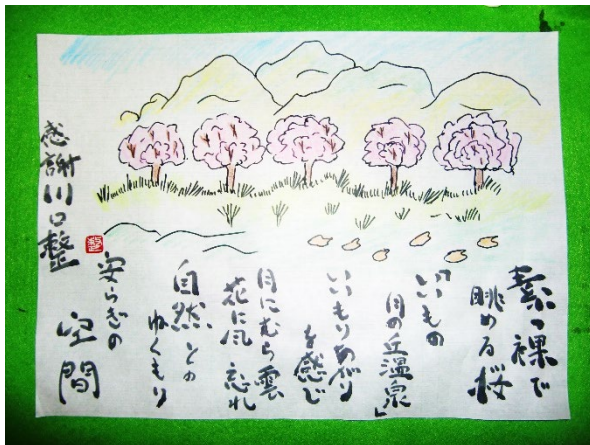 素っ裸で
眺める桜
「いもの
月の丘温泉」
いいもりめぐり
を感じ
月にむら雲
花に風 忘れ
自然との
ぬくもり
安らぎの
空間
感謝川口整